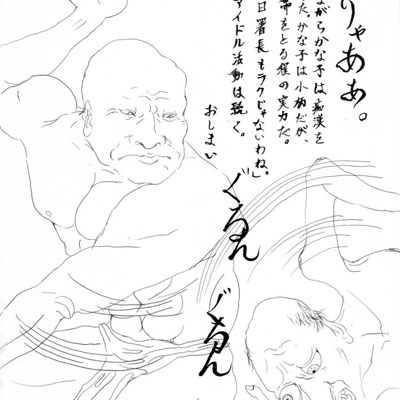 りゃああ。
がらかな子は痴漢を
た。かな子は小柄だが、
帯をとる程の実力だ。
日署長もラクじゃないわね。」
アイドル活動は続く。
おしまい
ぐるん
ぐるん